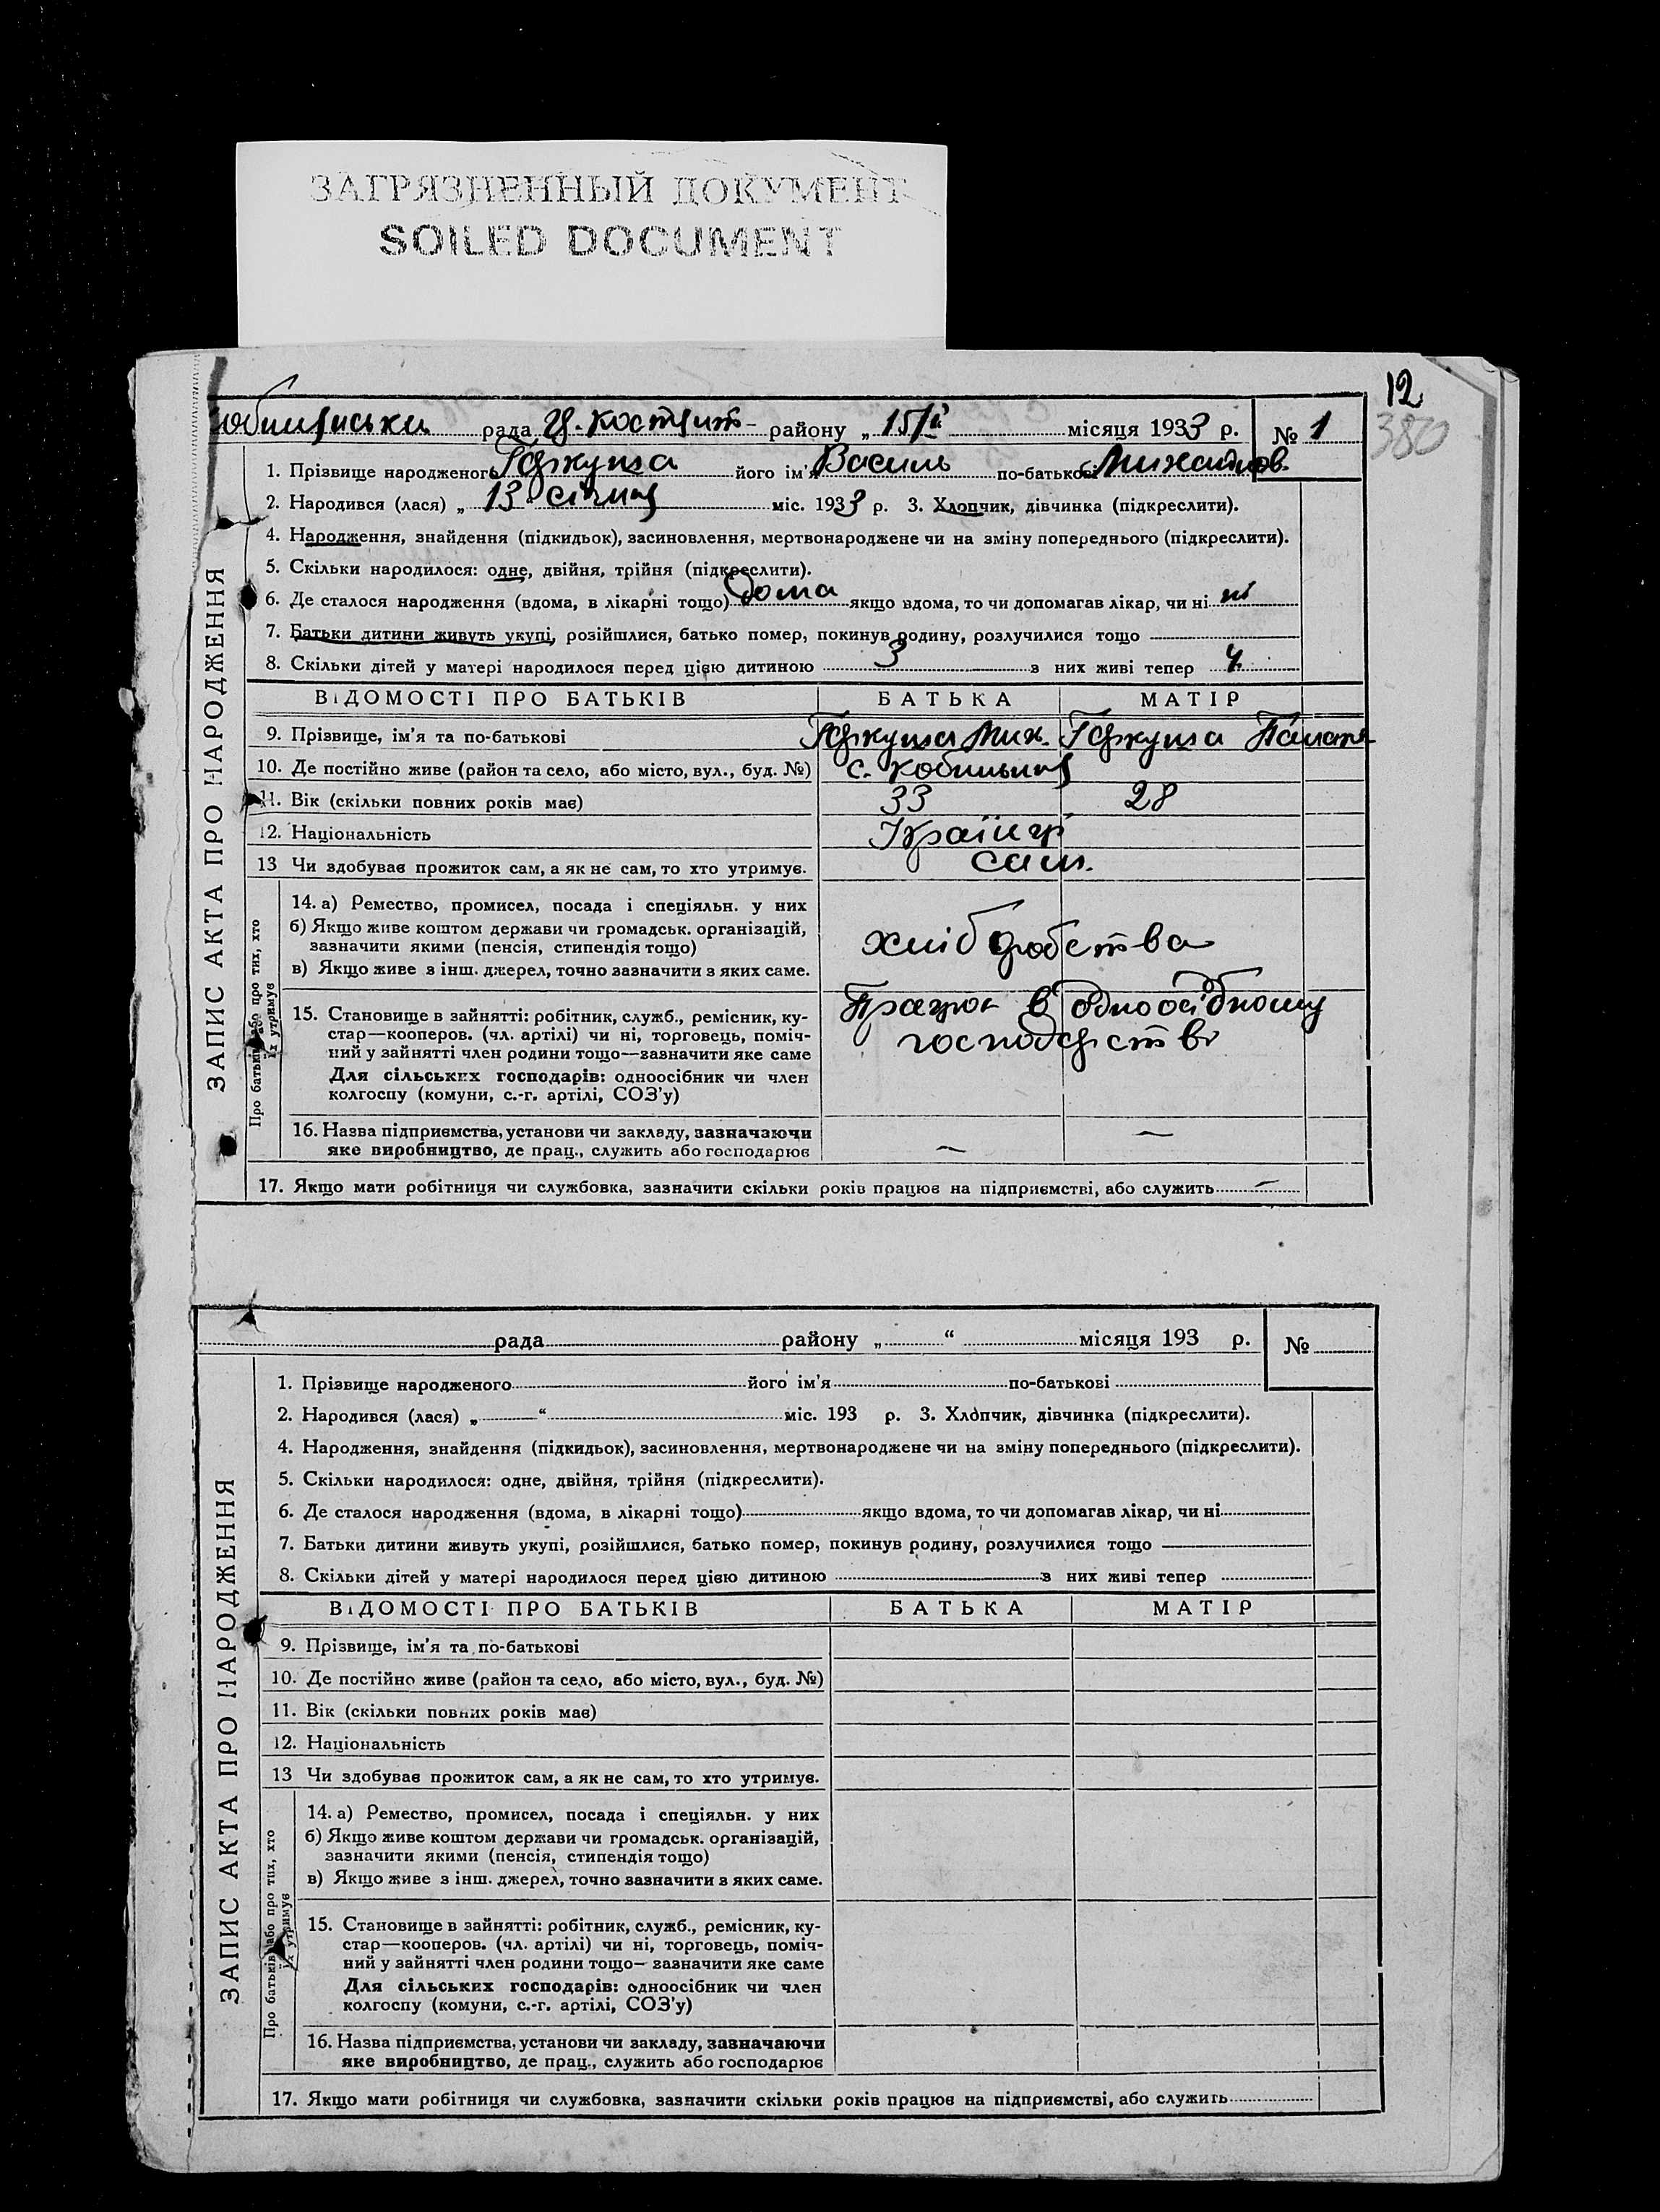 ЗАГРЯЗНЕННЫЙ ДОКУМЕНТ
SOILED DOCUMENT
12
380
рада району „15/I місяця 1933 р. № 1
1. Прізвище народженого його ім'я Василь по-батькові Михайлов.
2. Народився (лася) „13" січня міс. 1933 р. 3. Хлопчик, дівчинка (підкреслити).
4. Народження, знайдення (підкидьок), засиновлення, мертвонароджене чи на зміну попереднього (підкреслити).
5. Скільки народилося: одне, двійня, трійня (підкреслити).
6. Де сталося народження (вдома, в лікарні тощо) дома якщо вдома, то чи допомагав лікар, чи ні ні
7. Батьки дитини живуть укупі, розійшлися, батько помер, покинув родину, розлучилися тощо
8. Скільки дітей у матері народилося перед цією дитиною 3 з них живі тепер 4
ВІДОМОСТІ ПРО БАТЬКІВ БАТЬКА МАТІР
9. Прізвище, ім'я та по-батькові Мих.
10. Де постійно живе (район та село, або місто, вул., буд. №) с.
11. Вік (скільки повних років має) 33 28
12. Національність Україн
13 Чи здобуває прожиток сам, а як не сам, то хто утримує. сам.
14. а) Ремество, промисел, посада і спеціяльн. у них
б) Якщо живе коштом держави чи громадськ. організацій,
зазначити якими (пенсія, стипендія тощо)
в) Якщо живе з інш. джерел, точно зазначити з яких саме.
хліборобства
15. Становище в зайнятті: робітник, служб., ремісник, ку-
стар—кооперов. (чл. артілі) чи ні, торговець, поміч-
ний у зайнятті член родини тощо—зазначити яке саме
Для сільських господарів: одноосібник чи член
колгоспу (комуни, с.-г. артілі, СОЗ'у)
в одноосібному
господарстві
16. Назва підприємства, установи чи закладу, зазначаючи — —
яке виробництво, де прац., служить або господарює
17. Якщо мати робітниця чи службовка, зазначити скільки років працює на підприємстві, або служить —
ЗАПИС АКТА ПРО НАРОДЖЕННЯ
Про батьків або про тих, хто
їх утримує
рада району „ “ місяця 193 р. №
1. Прізвище народженого його ім'я по-батькові
2. Народився (лася) „ “ міс. 193 р. 3. Хлопчик, дівчинка (підкреслити).
4. Народження, знайдення (підкидьок), засиновлення, мертвонароджене чи на зміну попереднього (підкреслити).
5. Скільки народилося: одне, двійня, трійня (підкреслити).
6. Де сталося народження (вдома, в лікарні тощо) якщо вдома, то чи допомагав лікар, чи ні
7. Батьки дитини живуть укупі, розійшлися, батько помер, покинув родину, розлучилися тощо
8. Скільки дітей у матері народилося перед цією дитиною з них живі тепер
ВІДОМОСТІ ПРО БАТЬКІВ БАТЬКА МАТІР
9. Прізвище, ім'я та по-батькові
10. Де постійно живе (район та село, або місто, вул., буд. №)
11. Вік (скільки повних років має)
12. Національність
13 Чи здобуває прожиток сам, а як не сам, то хто утримує.
14. а) Ремество, промисел, посада і спеціяльн. у них
б) Якщо живе коштом держави чи громадськ. організацій,
зазначити якими (пенсія, стипендія тощо)
в) Якщо живе з інш. джерел, точно зазначити з яких саме.
15. Становище в зайнятті: робітник, служб., ремісник, ку-
стар—кооперов. (чл. артілі) чи ні, торговець, поміч-
ний у зайнятті член родини тощо—зазначити яке саме
Для сільських господарів: одноосібник чи член
колгоспу (комуни, с.-г. артілі, СОЗ'у)
16. Назва підприємства, установи чи закладу, зазначаючи
яке виробництво, де прац., служить або господарює
17. Якщо мати робітниця чи службовка, зазначити скільки років працює на підприємстві, або служить
ЗАПИС АКТА ПРО НАРОДЖЕННЯ
Про батьків або про тих, хто
їх утримує